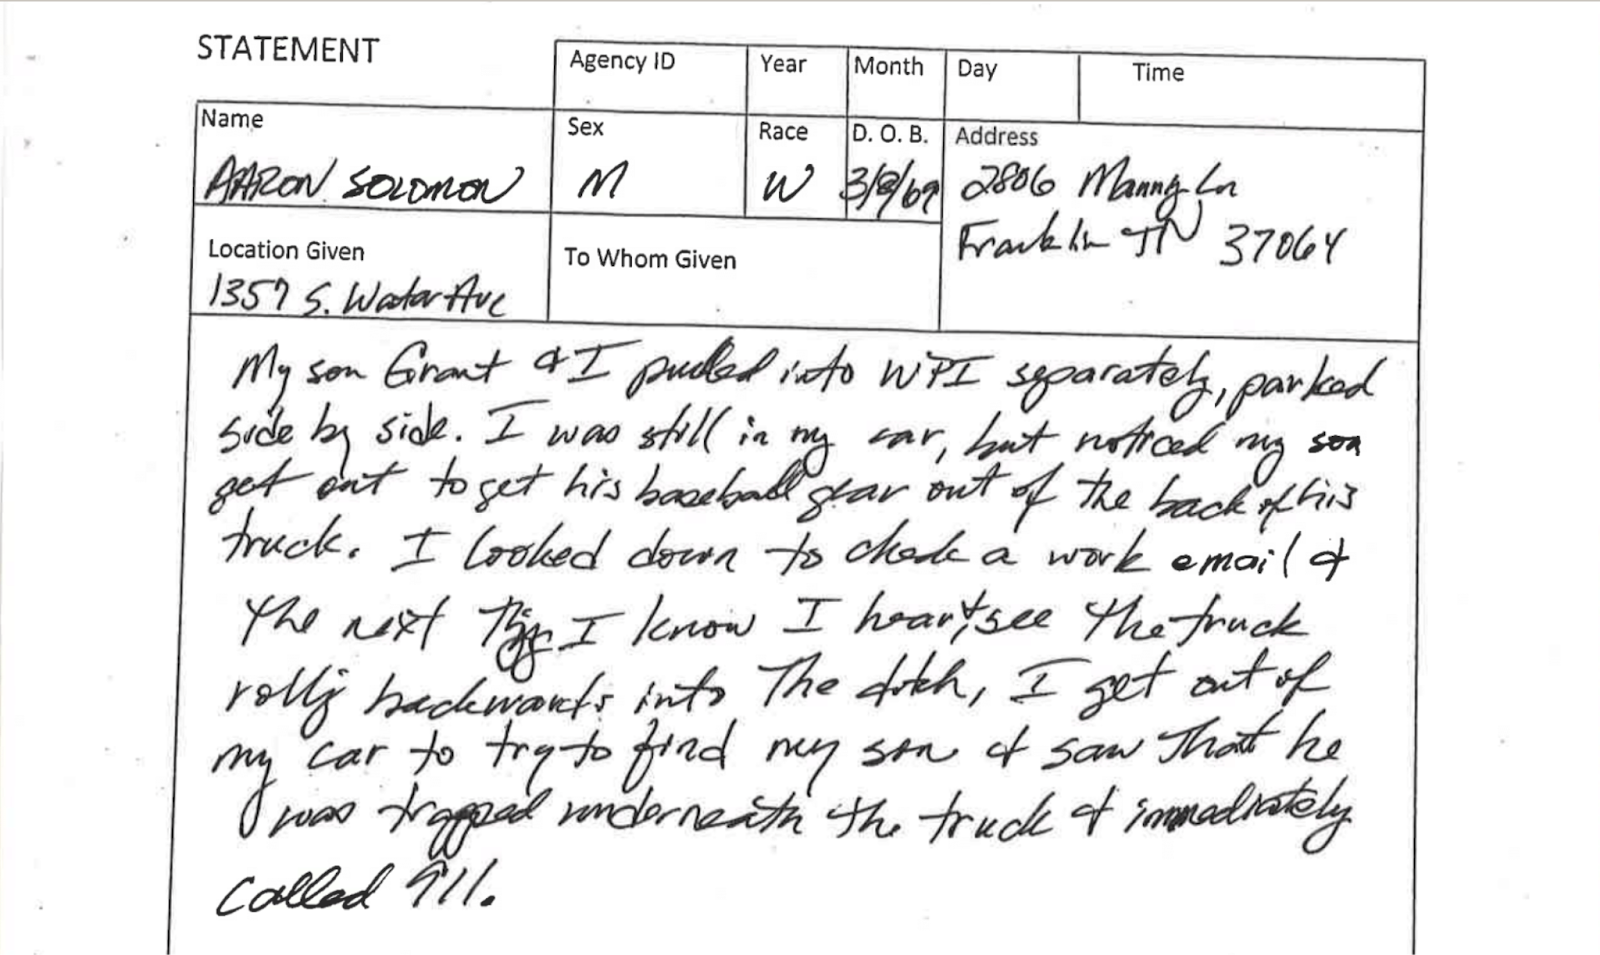 STATEMENT
Agency ID Year Month Day Time
Name Sex Race D. O. B. Address
AARON SOLOMON M W 3/8/69 2806 Manny Ln
Franklin TN 37064
Location Given To Whom Given
1357 S. Water Ave
My son Grant & I pulled into WPI separately, parked
side by side. I was still in my car, but noticed my son
get out to get his baseball gear out of the back of his
truck. I looked down to check a work email &
the next I know I hear & see the truck
rolling backwards into the ditch, I get out of
my car to try to find my son & saw that he
was trapped underneath the truck & immediately
called 911.